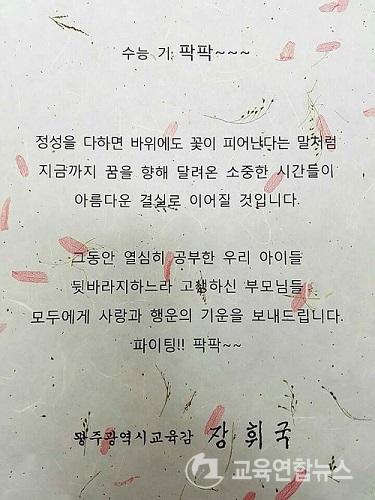 수능 기 팍팍~~~
정성을 다하면 바위에도 꽃이 피어난다는 말처럼
지금까지 꿈을 향해 달려온 소중한 시간들이
아름다운 결실로 이어질 것입니다.
그동안 열심히 공부한 우리 아이들
뒷바라지하느라 고생하신 부모님들
모두에게 사랑과 행운의 기운을 보내드립니다.
파이팅!! 팍팍~~
광주광역시교육감 장휘국
교육연합뉴스